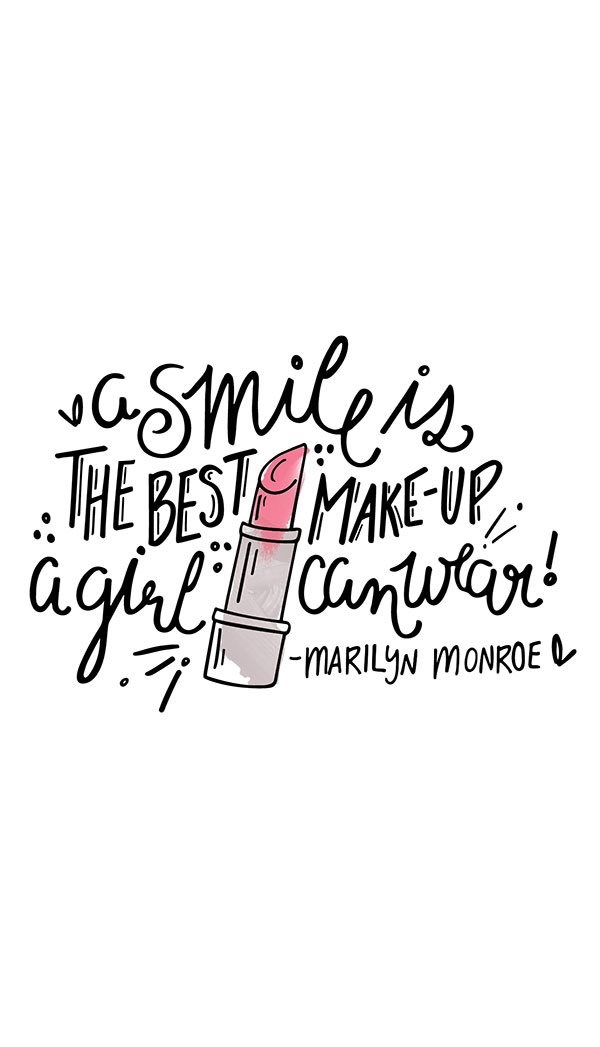 a smile is
THE BEST MAKE-UP
a girl can wear!
-MARILYN MONROE